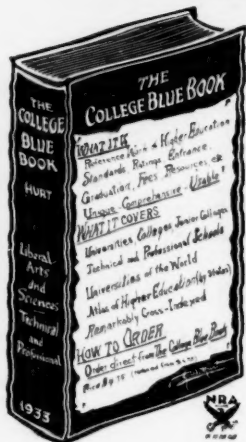 THE
COLLEGE
BLUE
BOOK
HURT
Liberal
Arts
and
Sciences
Technical
and
Professional
1933
THE
COLLEGE BLUE BOOK
WHAT IT IS
Reference Work of Higher Education
Standards, Ratings, Entrance,
Graduation, Fees, Resources, etc.
Unique Comprehensive Usable
WHAT IT COVERS
Universities, Colleges, Junior Colleges
Technical and Professional Schools
Universities of the World
Atlas of Higher Education (by States)
Remarkably Cross-Indexed
HOW TO ORDER
Order direct from The College Blue Book
NRA